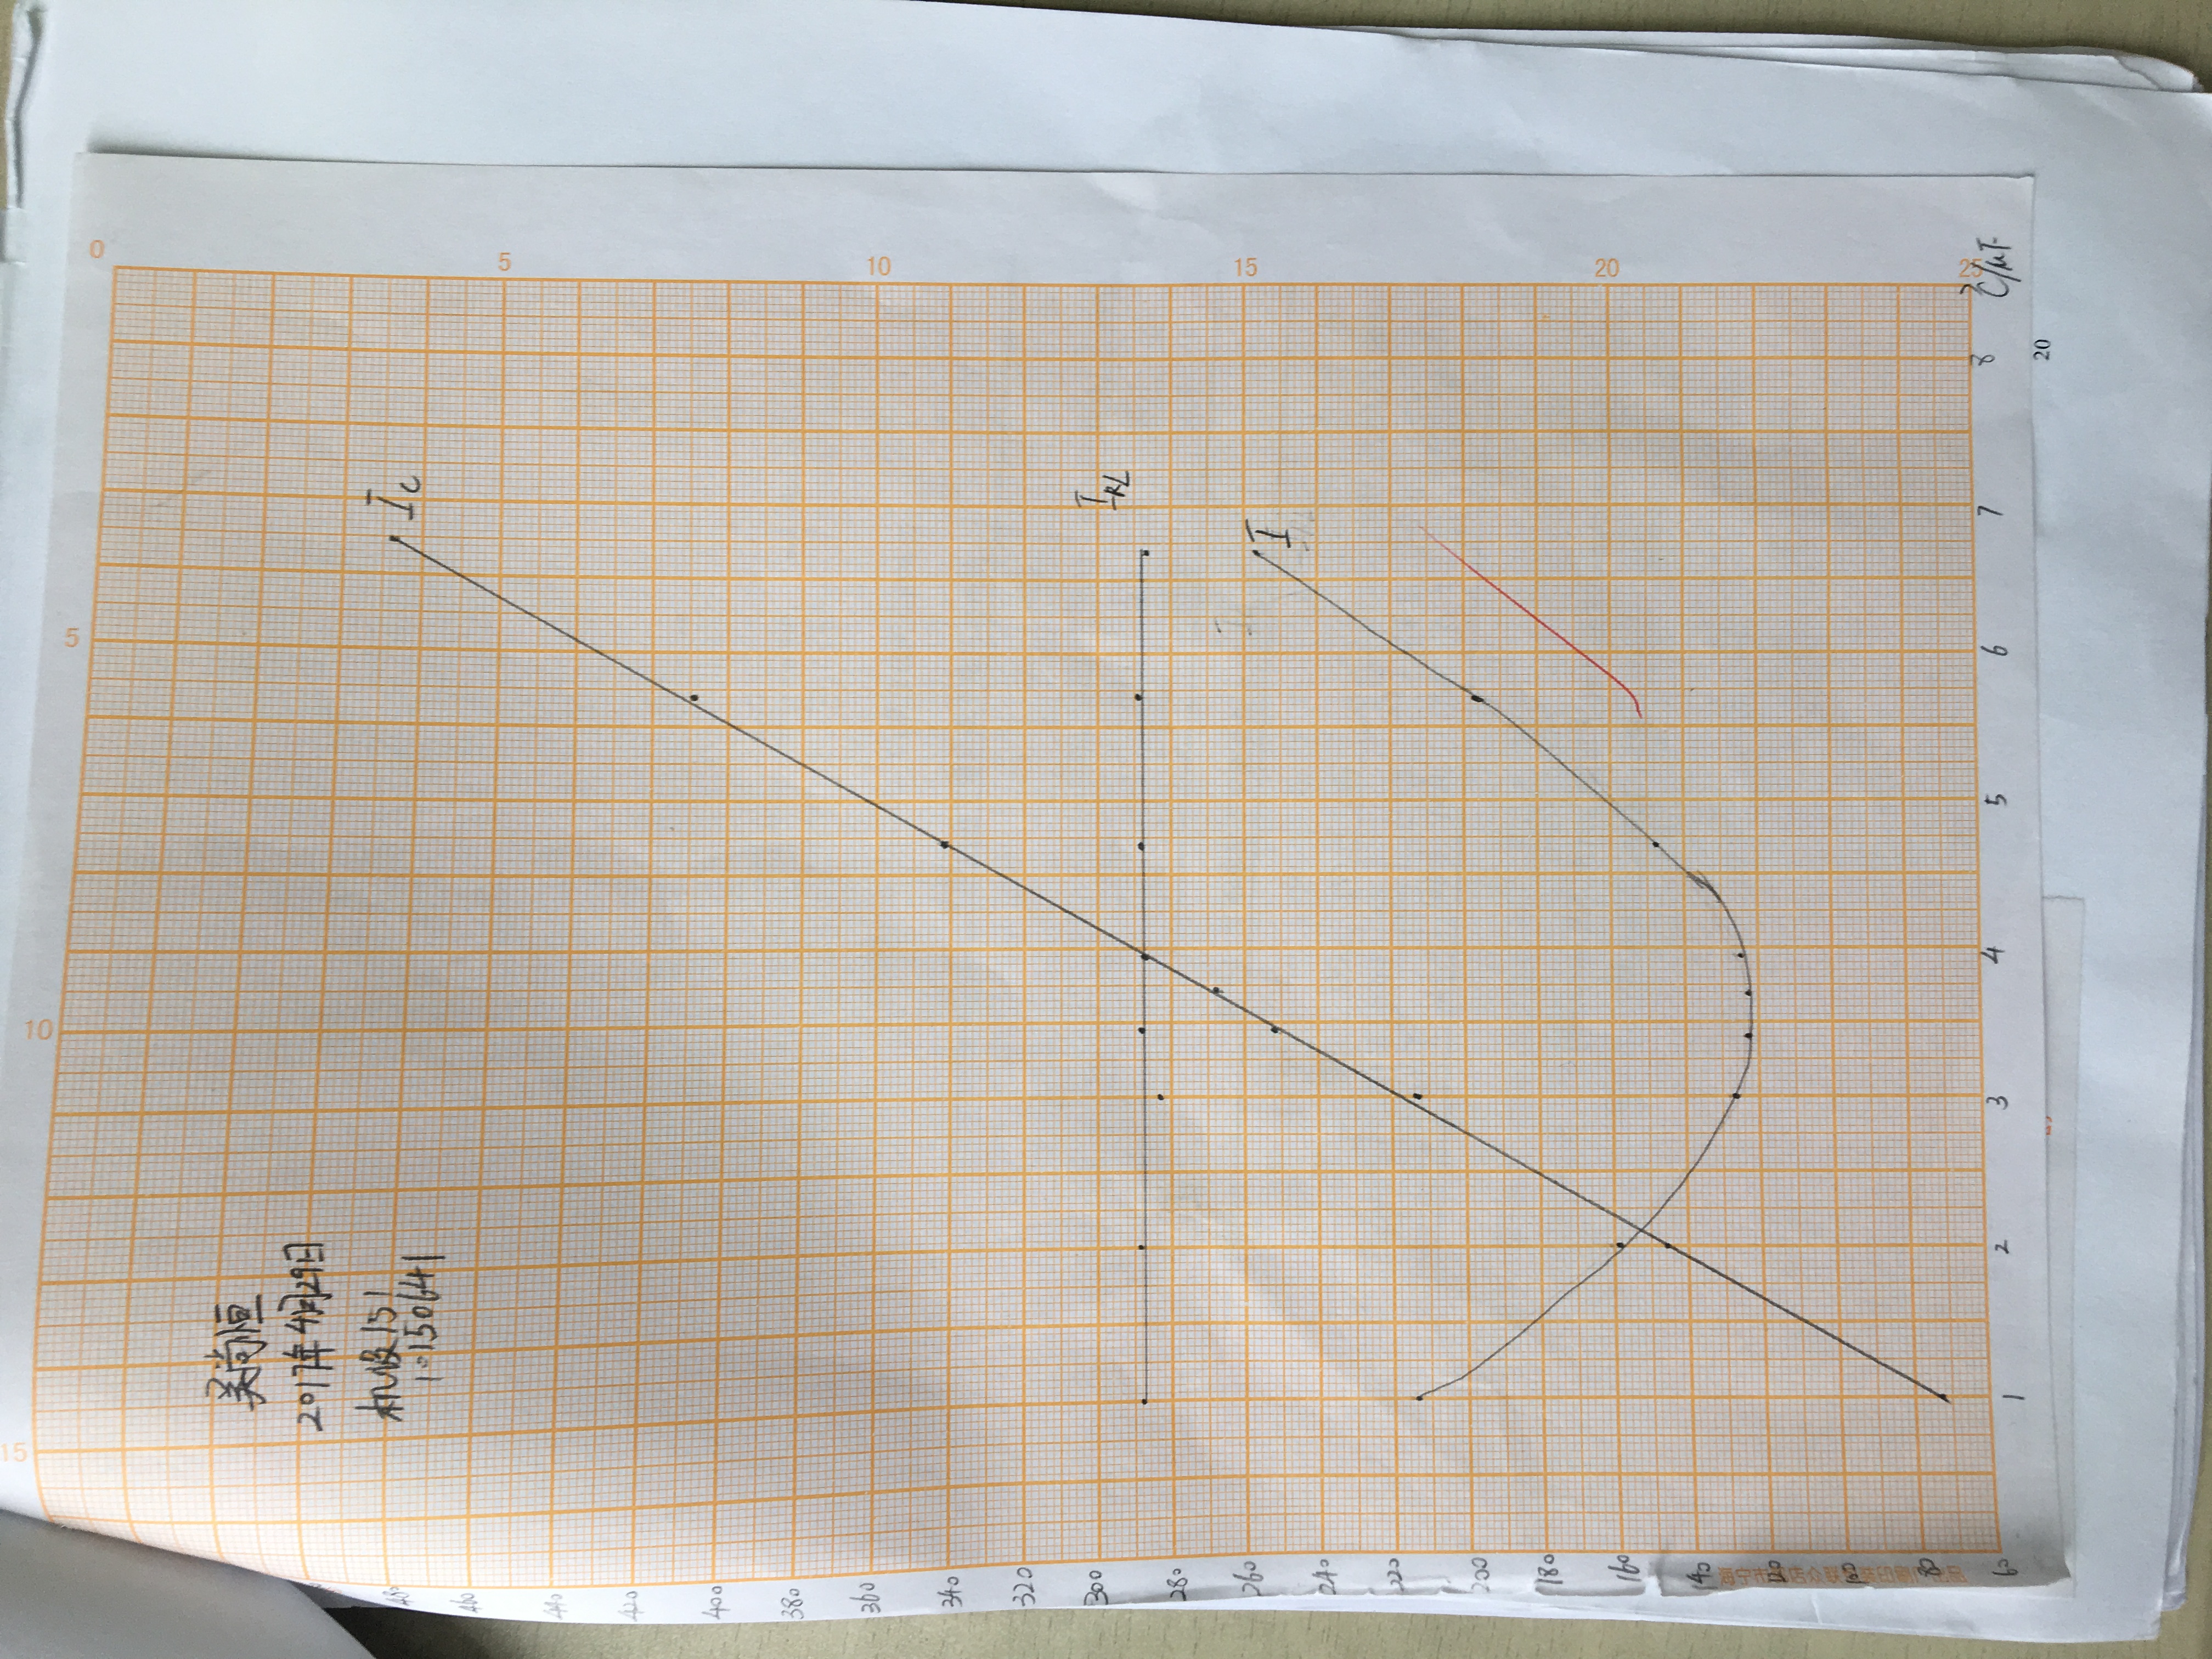 15
10
5
0
吴尚恒
2017年4月29日
机设151
10150641
480
460
440
420
400
380
360
340
320
300
280
260
240
220
200
180
160
140
120
80
60
I_C
I_RL
I
5
10
15
20
25
1 2 3 4 5 6 7 8 C/μF
20